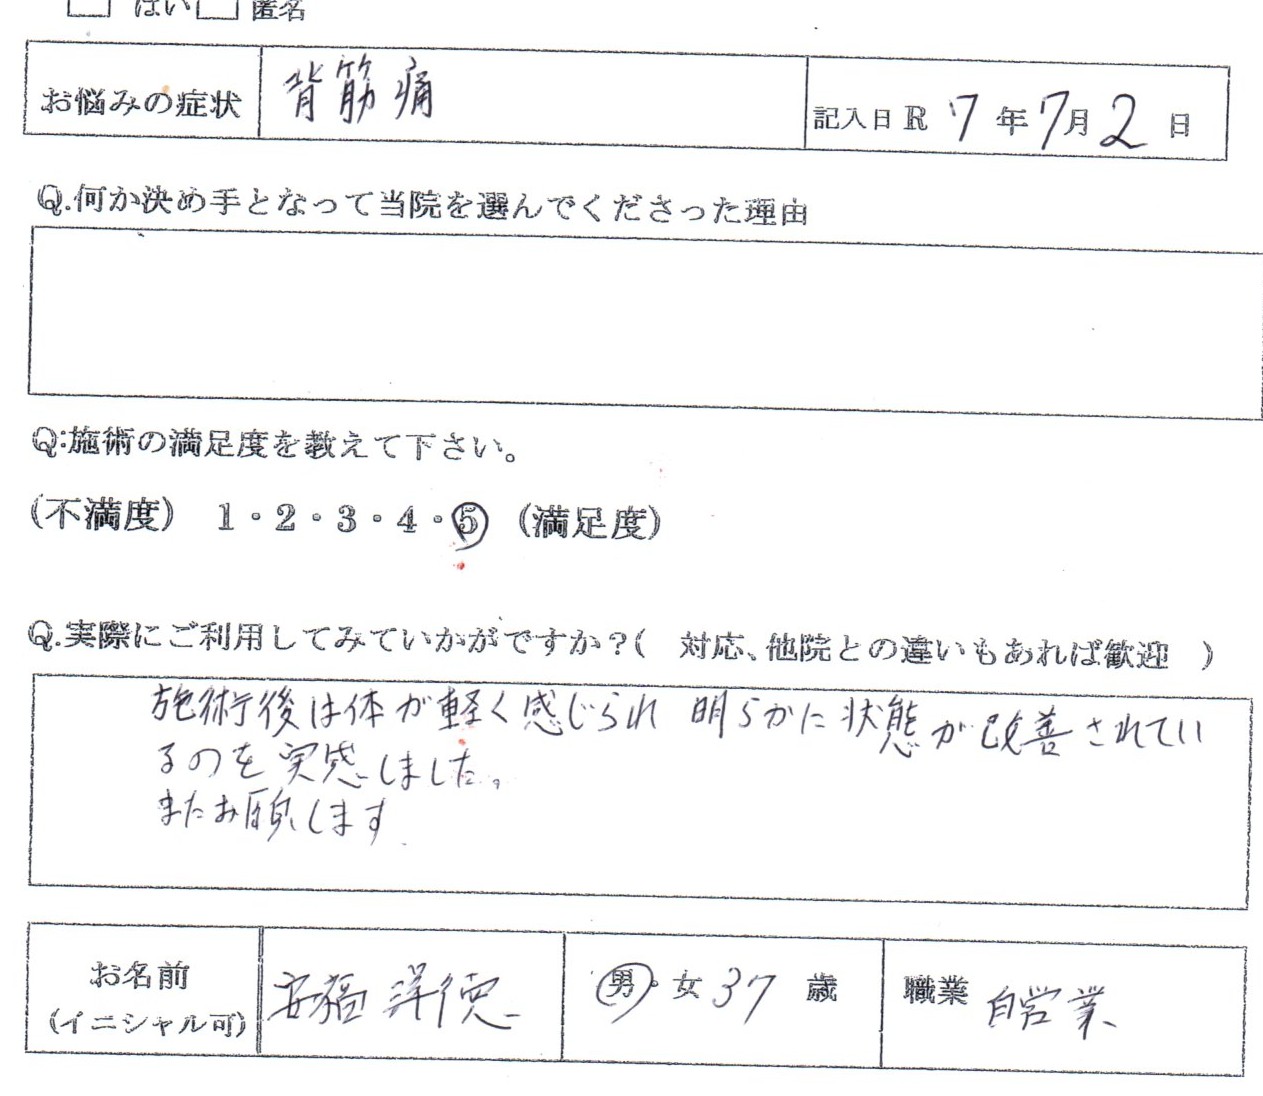 はい 匿名
お悩みの症状 背筋痛 記入日 R 7 年 7 月 2 日
Q.何か決め手となって当院を選んでくださった理由
Q:施術の満足度を教えて下さい。
(不満度) 1・2・3・4・5 (満足度)
Q.実際にご利用してみていかがですか?( 対応、他院との違いもあれば歓迎 )
施術後は体が軽く感じられ 明らかに状態が改善されてい
るのを実感しました。
またお願いします
お名前 安福 洋徳 男・女 37 歳 職業 自営業
(イニシャル可)